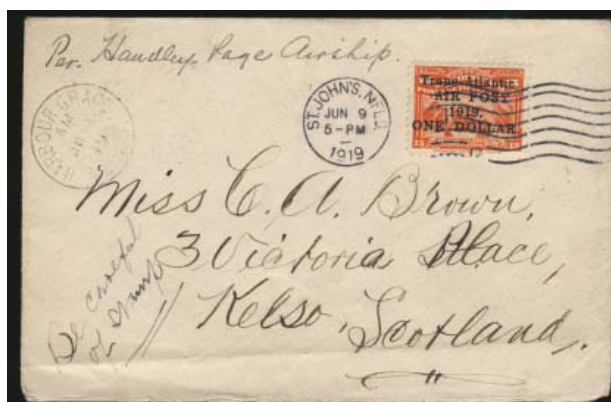 Per. Handley. Page Airship.
HARBOUR GRACE
AM
ST. JOHN'S. NFLD.
JUN 9
5-PM
1919
Trans-Atlantic
AIR POST
1919.
ONE DOLLAR
15 15
Miss C. A. Brown,
3 Victoria Place,
Kelso,
Scotland,
Be careful
of Stamp